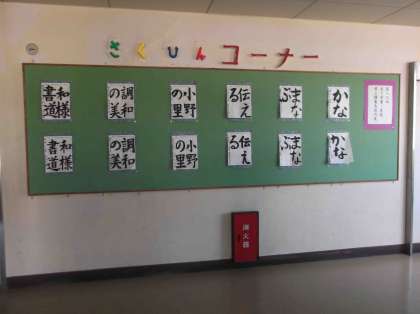 さくひんコーナー
かな
まな
ぶ
伝え
る
小野
の里
調和
の美
和様
書道
かな
まな
ぶ
伝え
る
小野
の里
調和
の美
和様
書道
消火器